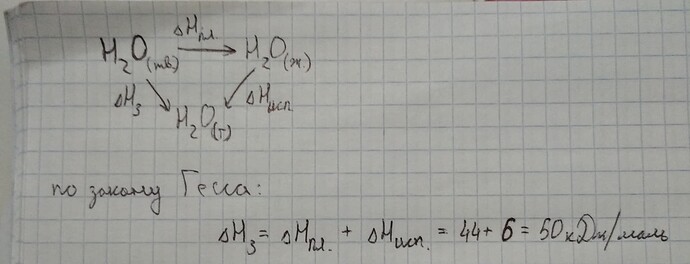 ΔHпл
H₂O(тв.) → H₂O(ж.)
ΔH₃ ΔHисп
H₂O(г)
по закону Гесса:
ΔH₃ = ΔHпл. + ΔHисп. = 44 + 6 = 50 кДж/моль